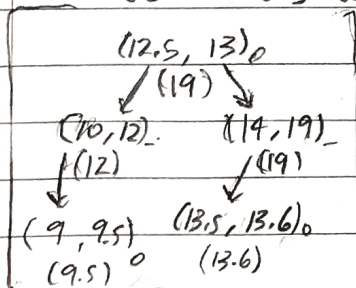 (12.5, 13)₀
(19)
(10,12)₋ (14,19)₋
(12) (19)
(9, 9.5)₀ (13.5, 13.6)₀
(9.5) (13.6)